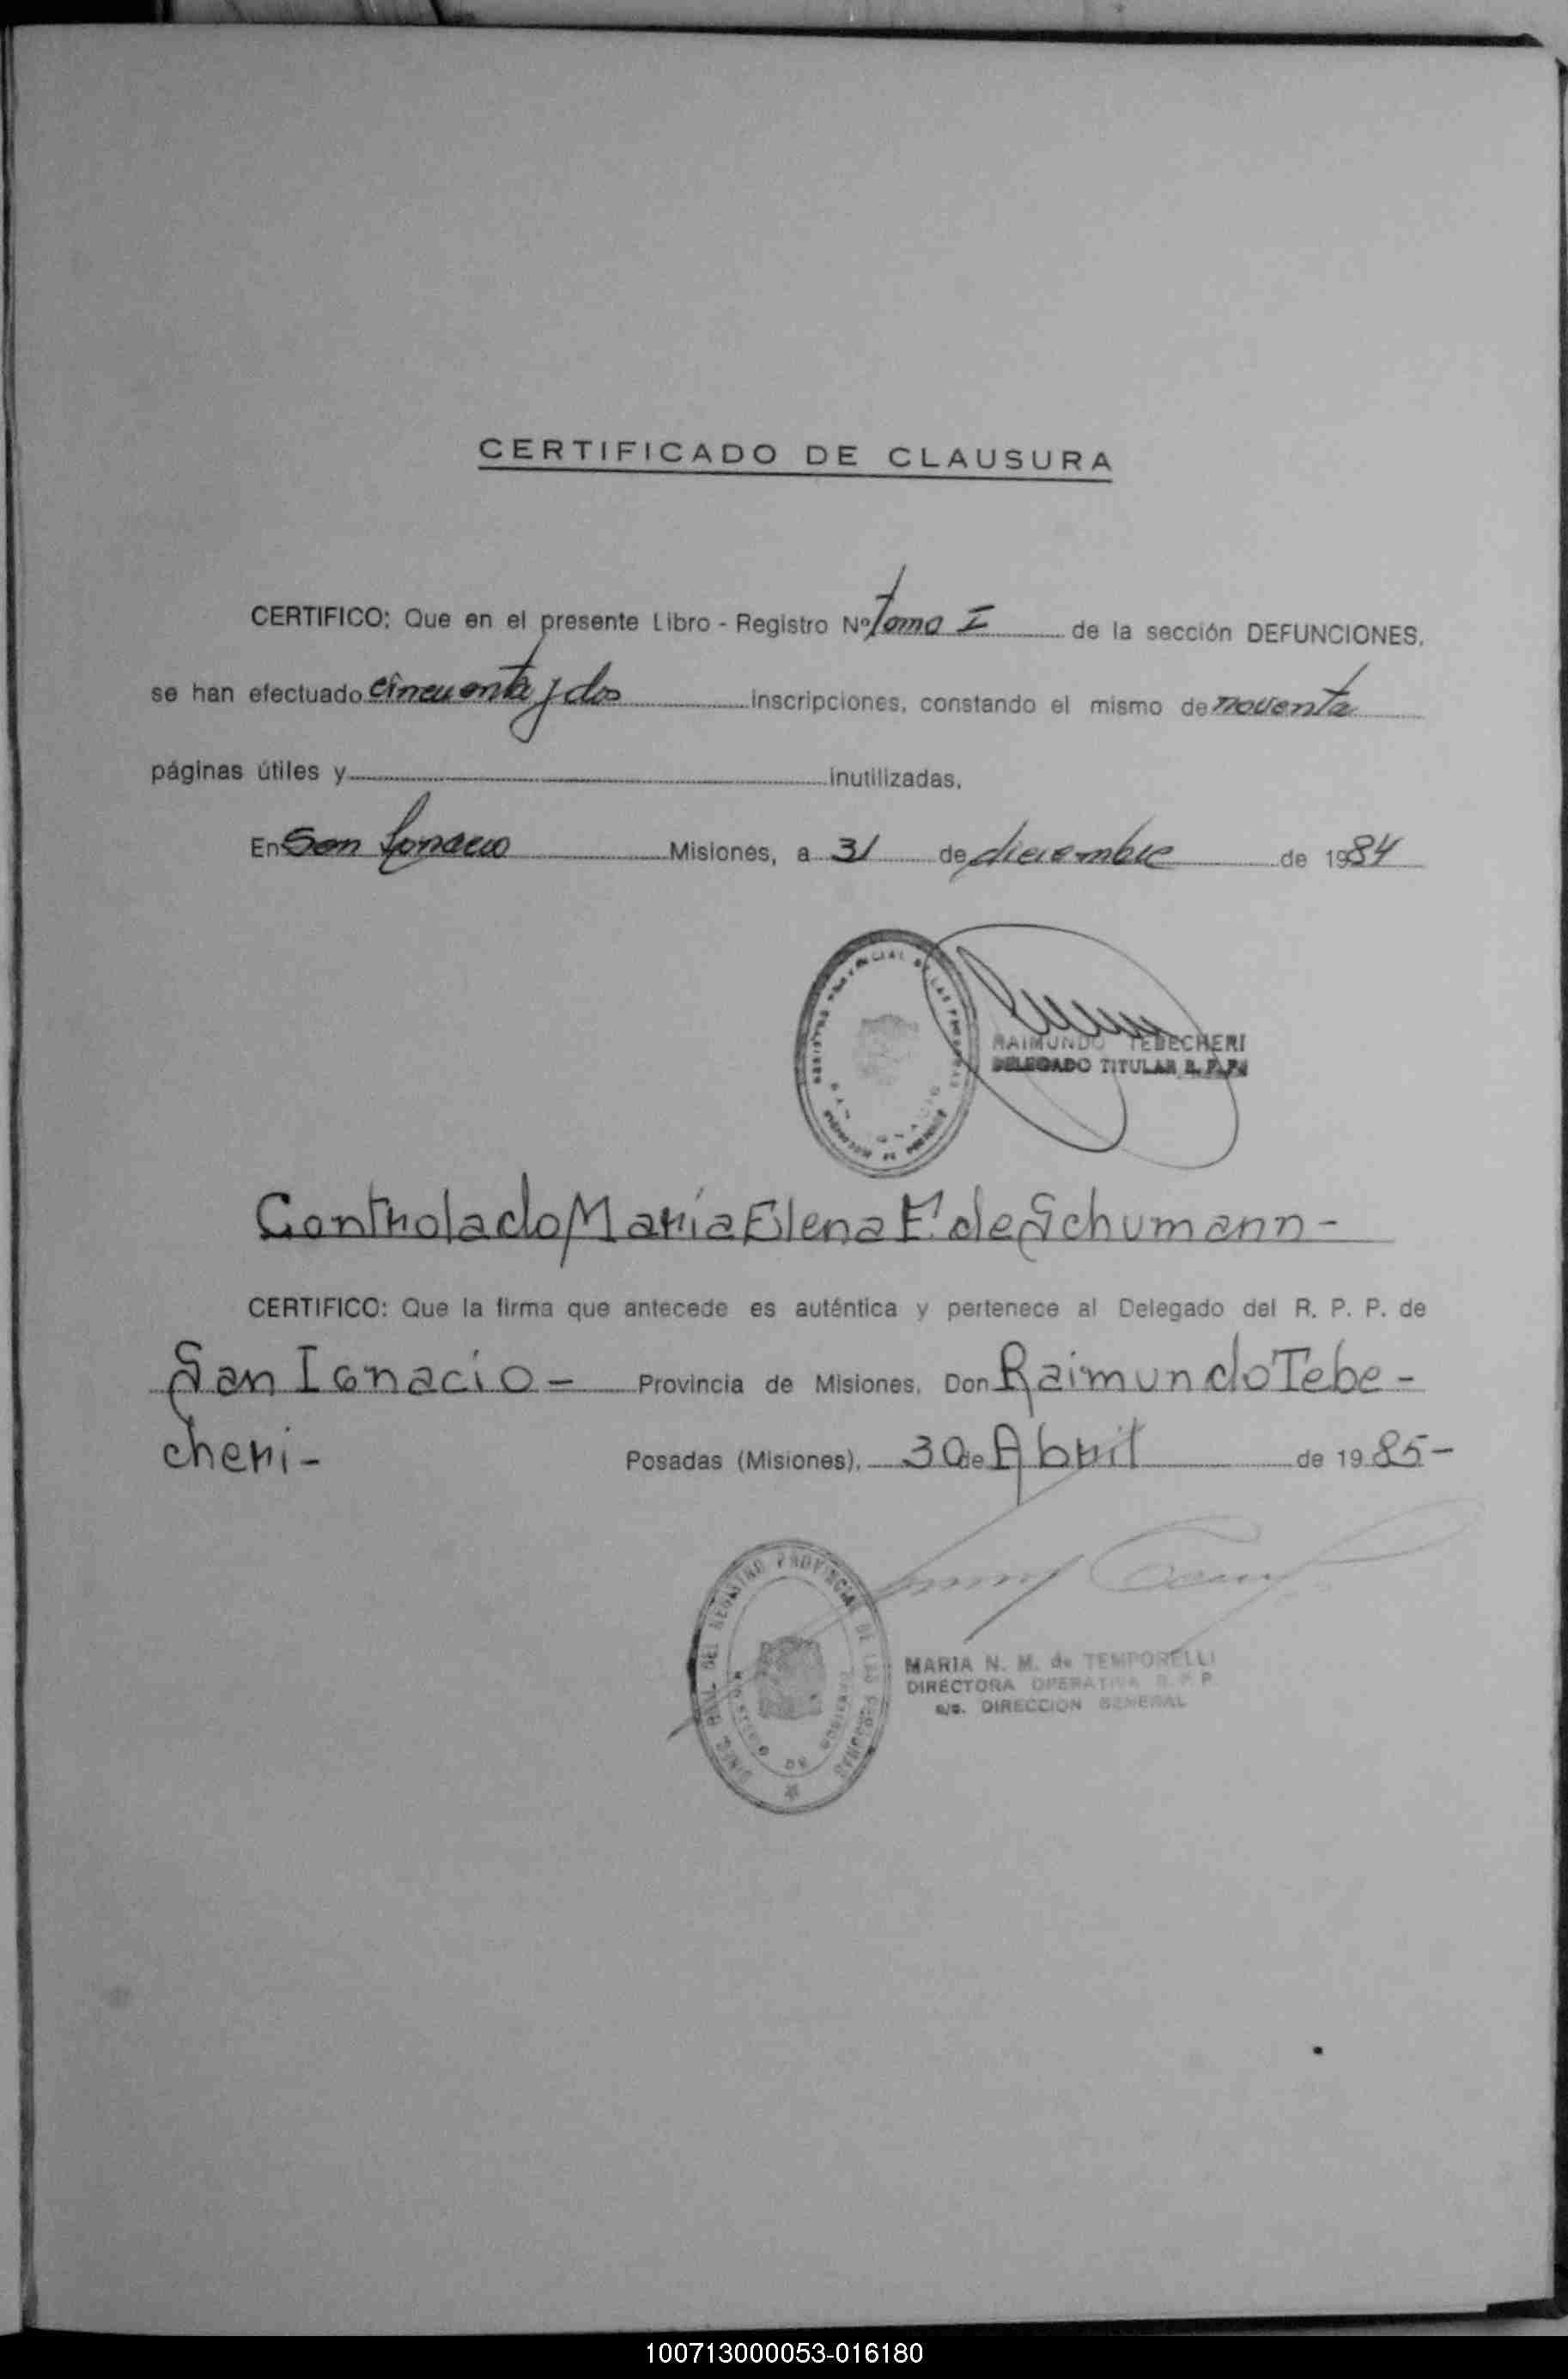 CERTIFICADO DE CLAUSURA
CERTIFICO: Que en el presente Libro - Registro Nº Tomo I de la sección DEFUNCIONES,
se han efectuado cincuenta y dos inscripciones, constando el mismo de noventa
páginas útiles y inutilizadas,
En San Ignacio Misiones, a 31 de diciembre de 1984
REGISTRO PROVINCIAL DE LAS PERSONAS
RAIMUNDO TEBECHERI
DELEGADO TITULAR R. P. P.
Controlado María Elena F. de Schumann -
CERTIFICO: Que la firma que antecede es auténtica y pertenece al Delegado del R. P. P. de
San Ignacio - Provincia de Misiones, Don Raimundo Tebe -
cheri - Posadas (Misiones), 30 de Abril de 1985 -
DIREC. GRAL. DEL REGISTRO PROVINCIAL DE LAS PERSONAS
MARIA N. M. de TEMPORELLI
DIRECTORA OPERATIVA R. P. P.
a/c. DIRECCION GENERAL
100713000053-016180